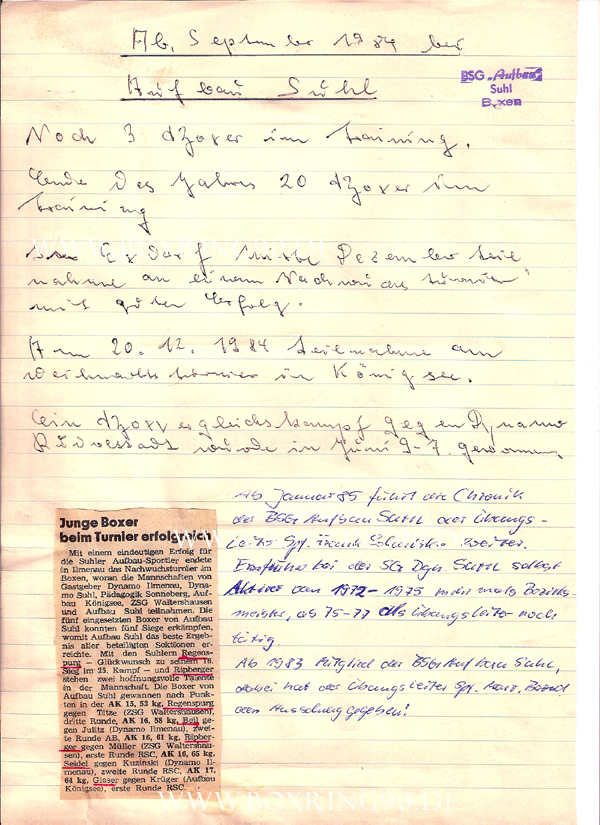 Ab, September 1984 bei
Aufbau Suhl
BSG „Aufbau“
Suhl
Boxen
Noch 3 Boxer im Training.
Ende des Jahres 20 Boxer im
Training
In Exdorf Mitte Dezember teil
nahme an einem Nachwuchsturnier
mit guten Erfolg.
Am 20.12.1984 teilnahme am
Weihnachtsturnier in Königsee.
Ein Boxvergleichskampf gegen Dynamo
wurde in Juni 9-7. gewonnen
Ab Januar 85 führt die Chronik
der BSG Aufbau Suhl der Übungs-
leiter Spf. Frank weiter.
Er früher bei der SG Dyn. Suhl selbst
Aktiver von 1972-1975 mehrmals Bezirks-
meister, ab 75-77 als Übungsleiter noch
tätig
Ab 1983 Mitglied der BSG Aufbau Suhl,
dabei hat der Übungsleiter Spf.
den gegeben!
Junge Boxer
beim Turnier erfolgreich
Mit einem eindeutigen Erfolg für
die Suhler Aufbau-Sportler endete
in Ilmenau das Nachwuchsturnier im
Boxen, woran die Mannschaften von
Gastgeber Dynamo Ilmenau, Dyna-
mo Suhl, Pädagogik Sonneberg, Auf-
bau Königsee, ZSG Waltershausen
und Aufbau Suhl teilnahmen. Die
fünf eingesetzten Boxer von Aufbau
Suhl konnten fünf Siege erkämpfen,
womit Aufbau Suhl das beste Ergeb-
nis aller beteiligten Sektionen er-
reichte. Mit den Suhlern Regens-
purg – Glückwunsch zu seinem 16.
Sieg im 25. Kampf – und Ripberger
stehen zwei hoffnungsvolle Talente
in der Mannschaft. Die Boxer von
Aufbau Suhl gewannen nach Punk-
ten in der AK 15, 53 kg, Regenspurg
gegen Tötze (ZSG Waltershausen),
dritte Runde, AK 16, 58 kg, Beil ge-
gen Julitz (Dynamo Ilmenau), zwei-
te Runde AB, AK 16, 61 kg, Ripber-
ger gegen Müller (ZSG Waltershau-
sen), erste Runde RSC, AK 16, 65 kg,
Seidel gegen Kuzinski (Dynamo Il-
menau), zweite Runde RSC, AK 17,
64 kg, Glaser gegen Krüger (Aufbau
Königsee), erste Runde RSC.
WWW.BOXRING90.DE